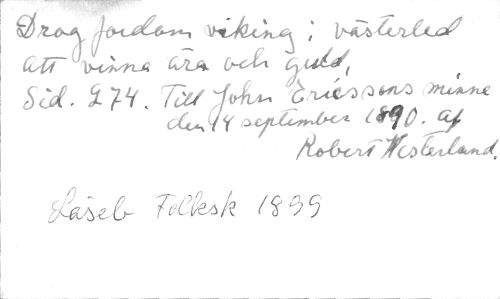 Drog fordom viking i västerled
att vinna ära och guld,
Sid. 274. Till John Ericssons minne
den 14 september 1890. af
Robert Westerlund.
Läseb Folksk 1899